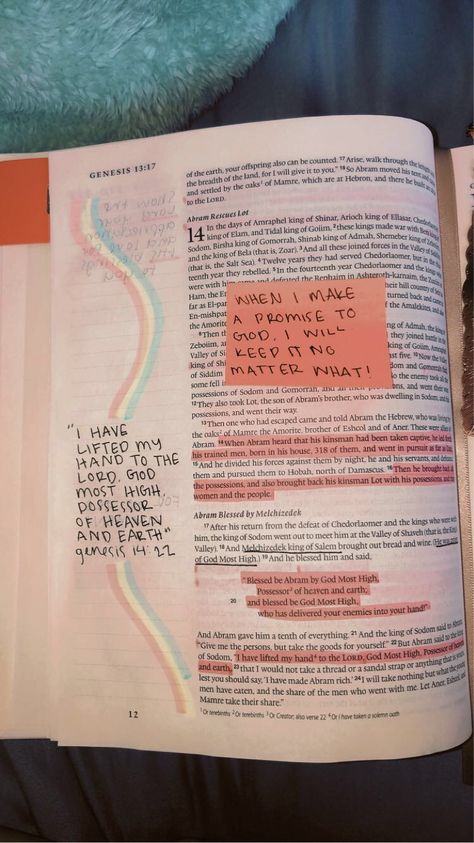 GENESIS 13:17
of the earth, your offspring also can be counted. 17 Arise, walk through the length
the breadth of the land, for I will give it to you." 18 So Abram moved his tent and
and settled by the oaks of Mamre, which are at Hebron, and there he built an
to the LORD.
Abram Rescues Lot
14 In the days of Amraphel king of Shinar, Arioch king of Ellasar, Chedorlaomer
king of Elam, and Tidal king of Goiim, 2 these kings made war with Bera king of
Sodom, Birsha king of Gomorrah, Shinab king of Admah, Shemeber king of Zeboiim,
and the king of Bela (that is, Zoar). 3 And all these joined forces in the Valley of
(that is, the Salt Sea). 4 Twelve years they had served Chedorlaomer, but in the
teenth year they rebelled. 5 In the fourteenth year Chedorlaomer and the kings
were with him came and defeated the Rephaim in Ashteroth-karnaim, the
Ham, the
far as El-
En-mishpat
the
WHEN I MAKE
A PROMISE TO
GOD, I WILL
KEEP IT NO
MATTER WHAT!
their hill country of
turned back and came
the Amalekites, and
8 Then
king of Admah, the king
Zeboiim,
they joined battle in the
Valley of
king of Goiim,
king of
five. 10 Now the Valley
of Siddim
Sodom and Gomorrah
some fell
the enemy took all the
possessions of Sodom and Gomorrah, and all their provisions, and went their way.
12 They also took Lot, the son of Abram's brother, who was dwelling in Sodom, and his
possessions, and went their way.
13 Then one who had escaped came and told Abram the Hebrew, who was living by
the oaks of Mamre the Amorite, brother of Eshcol and of Aner. These were allies of
Abram. 14 When Abram heard that his kinsman had been taken captive, he led forth
his trained men, born in his house, 318 of them, and went in pursuit as far as Dan.
15 And he divided his forces against them by night, he and his servants, and defeated
them and pursued them to Hobah, north of Damascus. 16 Then he brought back all
the possessions, and also brought back his kinsman Lot with his possessions, and the
women and the people.
"I HAVE
LIFTED MY
HAND TO THE
LORD, GOD
MOST HIGH,
POSSESSOR
OF HEAVEN
AND EARTH"
genesis 14:22
Abram Blessed by Melchizedek
17 After his return from the defeat of Chedorlaomer and the kings who were with
him, the king of Sodom went out to meet him at the Valley of Shaveh (that is, the King's
Valley). 18 And Melchizedek king of Salem brought out bread and wine. (He was priest
of God Most High.) 19 And he blessed him and said,
"Blessed be Abram by God Most High,
Possessor of heaven and earth;
20 and blessed be God Most High,
who has delivered your enemies into your hand!"
And Abram gave him a tenth of everything. 21 And the king of Sodom said to Abram,
"Give me the persons, but take the goods for yourself." 22 But Abram said to the king
of Sodom, "I have lifted my hand to the LORD, God Most High, Possessor of heaven
and earth, 23 that I would not take a thread or a sandal strap or anything that is yours,
lest you should say, 'I have made Abram rich.' 24 I will take nothing but what the young
men have eaten, and the share of the men who went with me. Let Aner, Eshcol, and
Mamre take their share."
12
1 Or terebinths 2 Or terebinths 3 Or Creator; also verse 22 4 Or I have taken a solemn oath